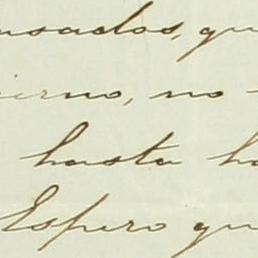 usados, qu
ierno, no
hasta ha
Espero qu